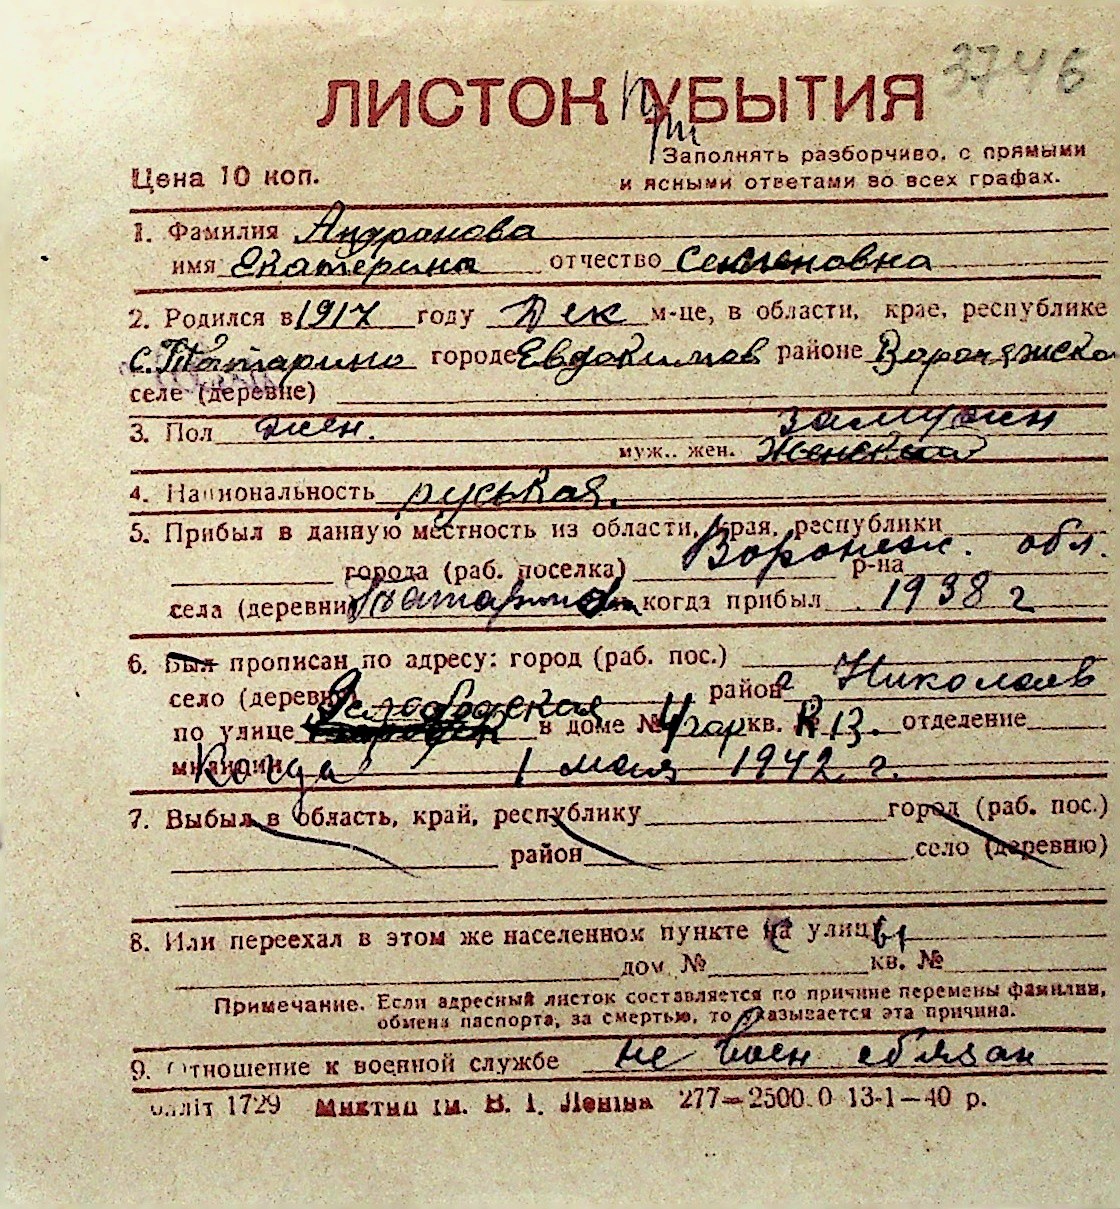 3746
ЛИСТОК УБЫТИЯ
при
Заполнять разборчиво, с прямыми
Цена 10 коп.
и ясными ответами во всех графах.
1. Фамилия Андронова
имя Екатерина отчество Семеновна
2. Родился в 1917 году Дек м-це, в области, крае, республике
с. Татарино городе Евдокимов районе Воронежско
селе (деревне)
3. Пол жен. замужем
муж.. жен. Женский
4. Национальность руськая.
5. Прибыл в данную местность из области, края, республики
Воронеж. обл.
города (раб. поселка) р-на
села (деревни) Татарино когда прибыл 1938 г
6. Был прописан по адресу: город (раб. пос.)
село (деревня) район г Николаев
Слободская
по улице в доме № 4 пар кв. № К 13. отделение
милиции Когда 1 мая 1942 г.
7. Выбыл в область, край, республику город (раб. пос.)
район село (деревню)
8. Или переехал в этом же населенном пункте с улицы
дом № кв. №
Примечание. Если адресный листок составляется по причине перемены фамилии,
обмена паспорта, за смертью, то указывается эта причина.
9. Отношение к военной службе не воен обязан
1729 Миктип ім. В. І. Леніна 277—2500.0 13-1—40 р.